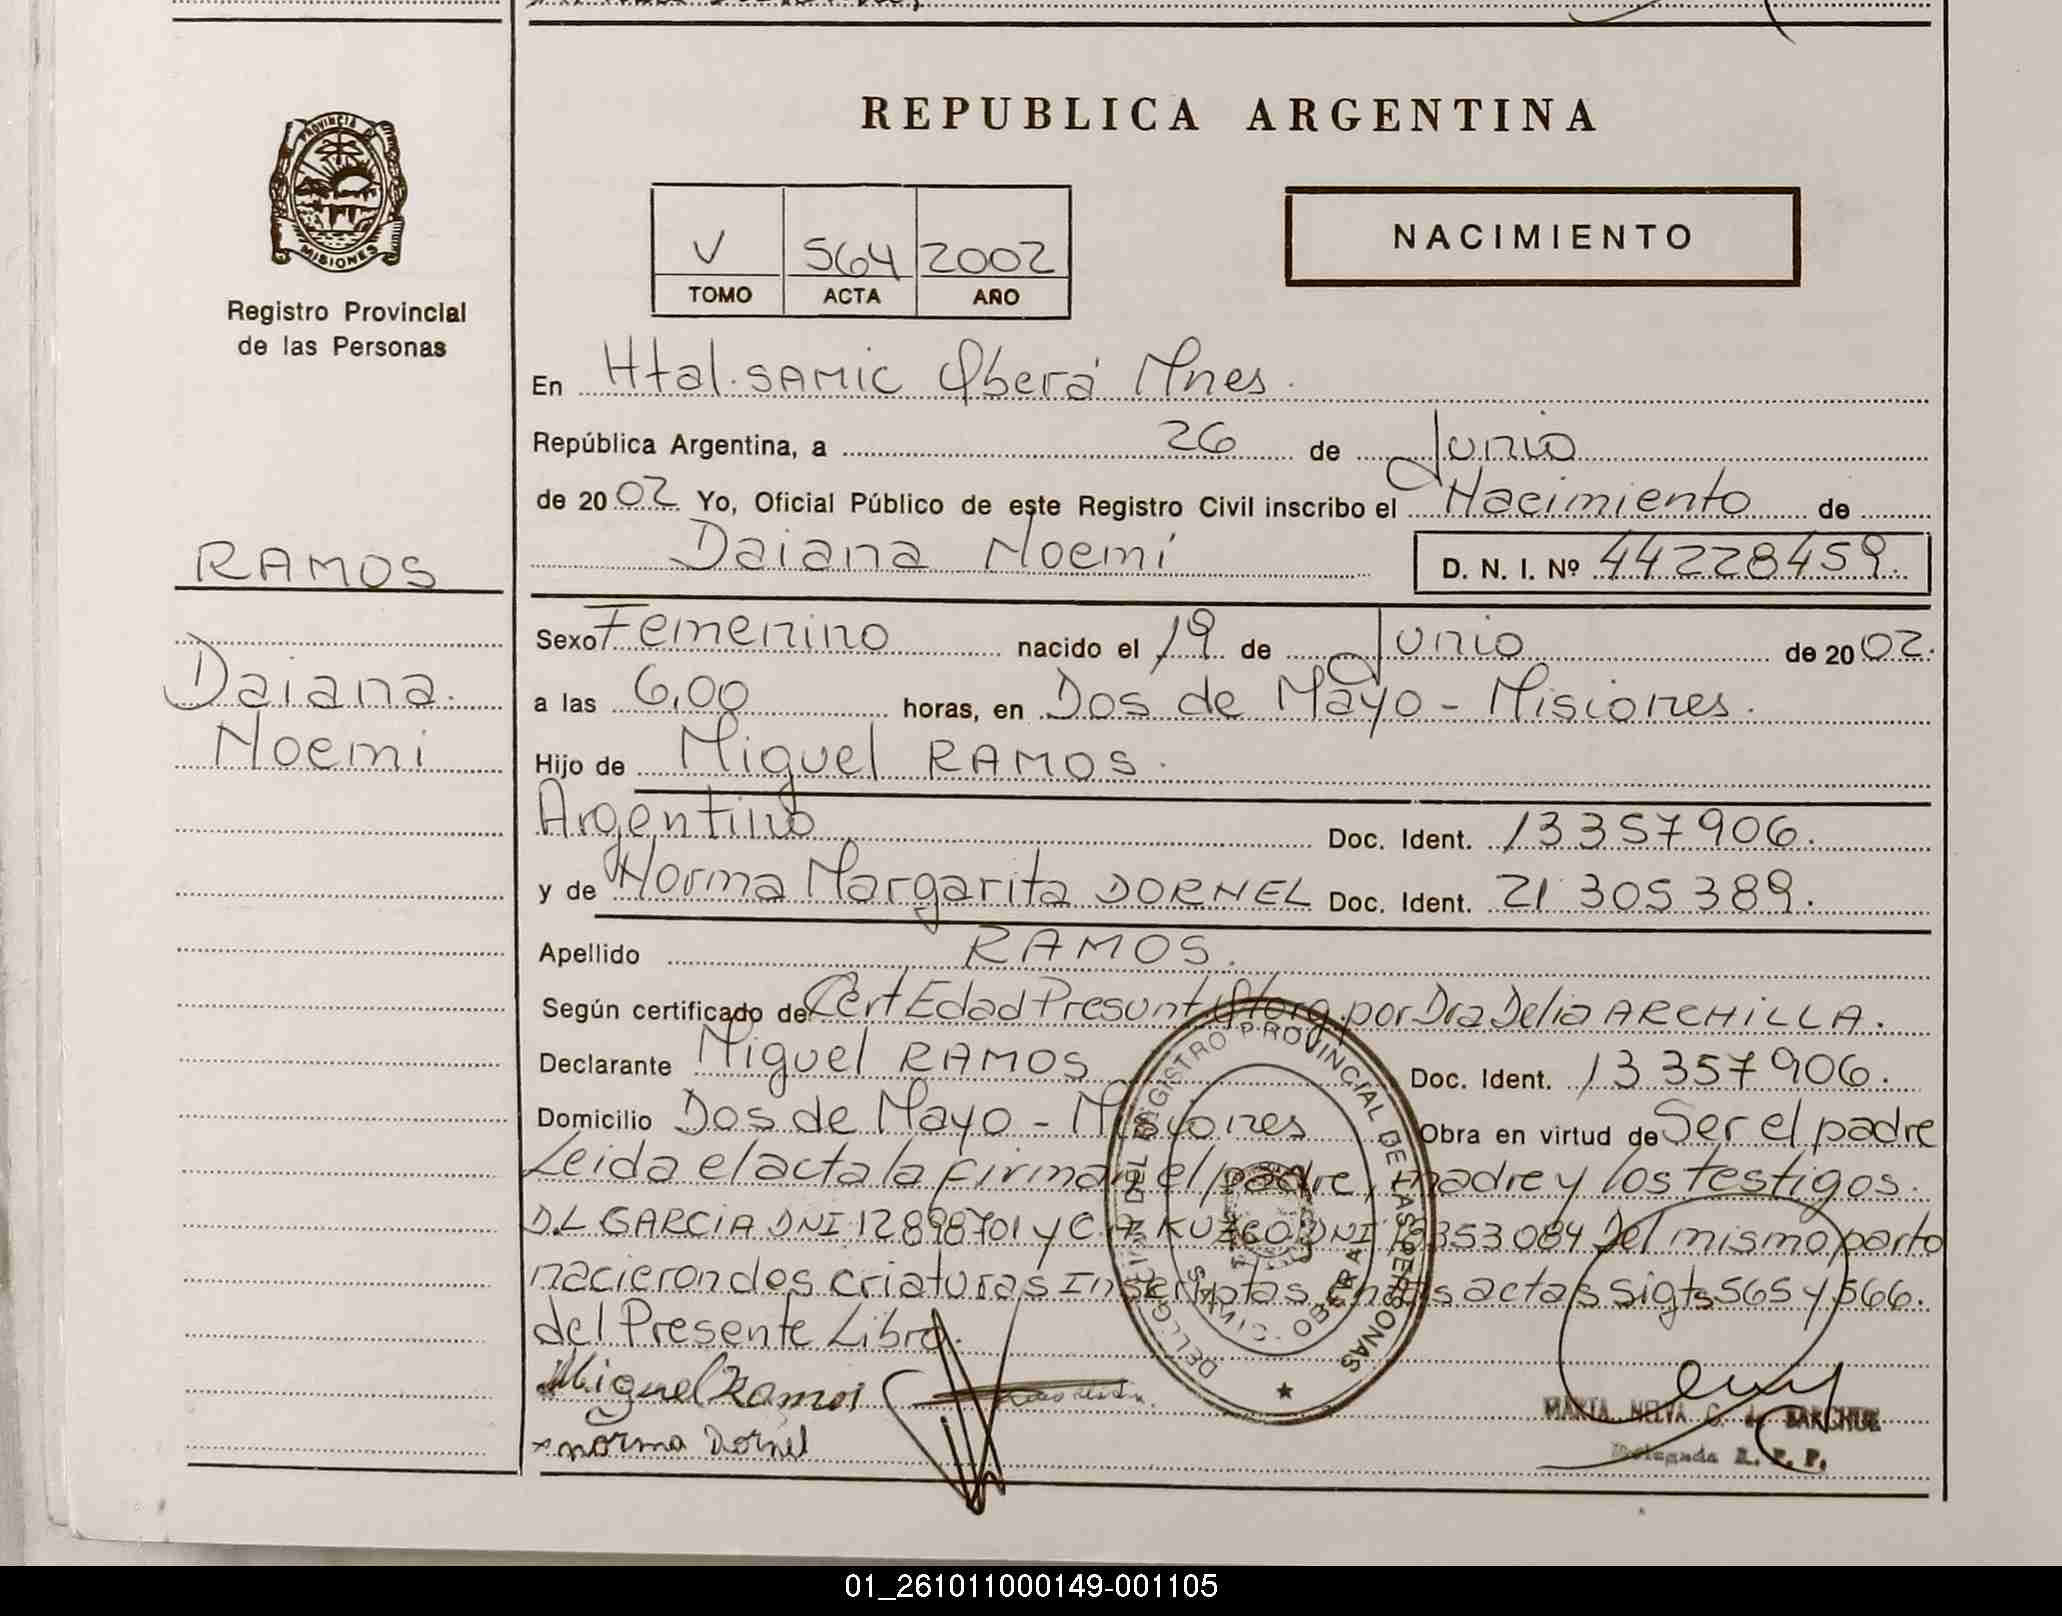 REPUBLICA ARGENTINA
PROVINCIA DE MISIONES
Registro Provincial
de las Personas
V 564 2002
TOMO ACTA AÑO
NACIMIENTO
En Htal. SAMIC Oberá Mnes.
República Argentina, a 26 de Junio
de 2002 Yo, Oficial Público de este Registro Civil inscribo el Nacimiento de
Daiana Noemí D. N. I. Nº 44228459.
RAMOS
Daiana
Noemi
Sexo Femenino nacido el 19 de Junio de 2002.
a las 6,00 horas, en Dos de Mayo - Misiones.
Hijo de Miguel RAMOS.
Argentino Doc. Ident. 13357906.
y de Norma Margarita DORNEL Doc. Ident. 21 305 389.
Apellido RAMOS.
Según certificado de Cert Edad Presunt Otorg. por Dra Delia ARCHILLA.
Declarante Miguel RAMOS Doc. Ident. 13 357 906.
Domicilio Dos de Mayo - Misiones Obra en virtud de Ser el padre
Leida el acta la firman el padre, madre y los testigos.
D.L GARCIA DNI 12898701 y C.A. DNI 18353084 Del mismo parto
nacieron dos criaturas Inscriptas en las actas sigts 565 y 566.
del Presente Libro.
Miguel Ramos
norma Dornel
REGISTRO PROVINCIAL DE LAS PERSONAS
MARIA NELVA C. de
Delegada R. P. P.
01_261011000149-001105